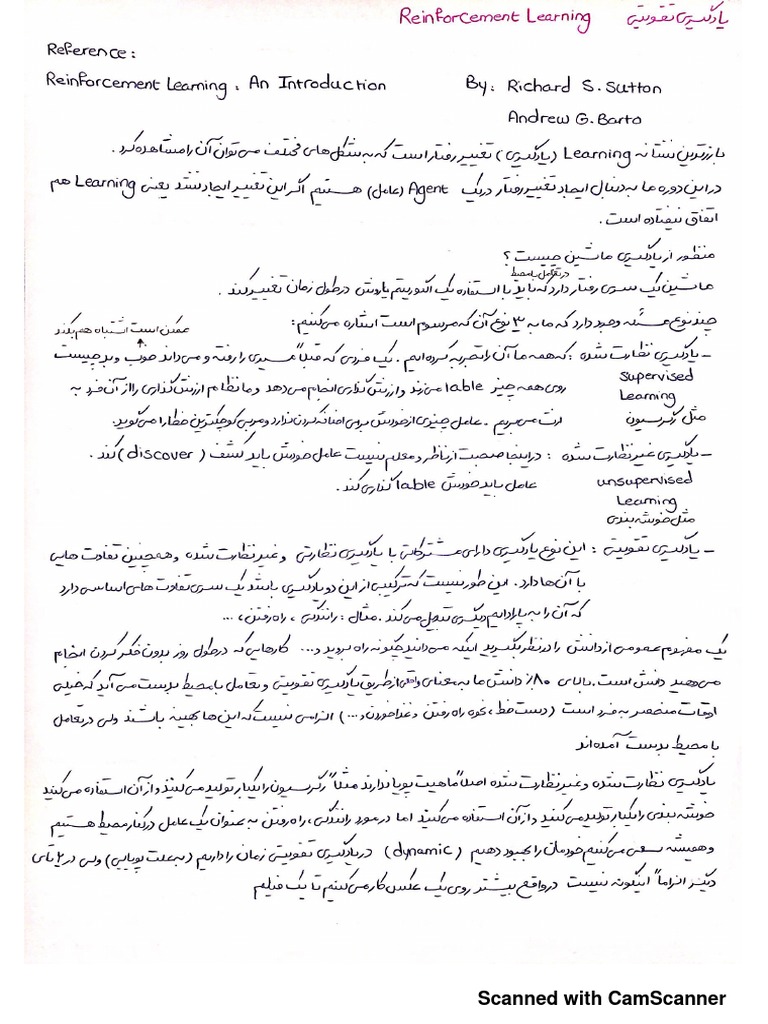 یادگیری تقویتی Reinforcement Learning
Reference:
Reinforcement Learning: An Introduction By: Richard S. Sutton
Andrew G. Barto
بارزترین نشانه Learning (یادگیری) تغییر رفتار است که به شکل های مختلف می توان آن را مشاهده کرد.
در این دوره ما به دنبال ایجاد تغییر رفتار در یک Agent (عامل) هستیم اگر این تغییر ایجاد نشد یعنی Learning هم
اتفاق نیفتاده است.
منظور از یادگیری ماشین چیست؟
در تعامل با محیط
ماشین یک سری رفتار دارد که باید با استفاده یک الگوریتم یا روش در طول زمان تغییر کند.
چند نوع مسئله وجود دارد که ما به 3 نوع آن که مرسوم است اشاره می کنیم:
ممکن است اشتباه هم بکند
- یادگیری نظارت شده: که همه ما آن را تجربه کرده ایم. یک فردی که قبلاً مسیری را رفته و می داند خوب و بد چیست
Supervised
Learning
روی همه چیز lable می زند و ارزش گذاری انجام می دهد و ما نظام ارزش گذاری را از آن فرد به
مثل رگرسیون
ارث می بریم. عامل چیزی از خودش برای اضافه کردن ندارد و مربی کوچکترین خطا را می گوید.
- یادگیری غیر نظارت شده: در اینجا صحبت از ناظر و معلم نیست عامل خودش باید کشف (discover) کند.
unsupervised
Learning
عامل باید خودش lable گذاری کند.
مثل خوشه بندی
- یادگیری تقویتی: این نوع یادگیری دارای مشترکاتی با یادگیری نظارتی و غیر نظارت شده و همچنین تفاوت هایی
با آن ها دارد. این طور نیست که ترکیبی از این دو یادگیری باشد یک سری تفاوت های اساسی دارد
که آن را به پارادایم دیگری تبدیل می کند. مثال: رانندگی، راه رفتن، ...
یک مفهوم عمومی از دانش را در نظر بگیرید اینکه می دانید چگونه راه بروید و... کارهایی که در طول روز بدون فکر کردن انجام
می دهید دانش است. بالای 80% دانش ما به معنای واقعی از طریق یادگیری تقویتی و تعامل با محیط بدست می آید که خیلی
اوقات منحصر به فرد است (دست خط، نحوه راه رفتن و غذا خوردن و...) الزامی نیست که این ها بهینه باشند ولی در تعامل
با محیط بدست آمده اند
یادگیری نظارت شده و غیر نظارت شده اصلاً ماهیت پویا ندارند مثلاً رگرسیون را یکبار تولید می کنید و از آن استفاده می کنید
خوشه بندی را یکبار تولید می کنید و از آن استفاده می کنید اما در مورد رانندگی، راه رفتن به عنوان یک عامل در کنار محیط هستیم
و همیشه سعی می کنیم خودمان را بهبود دهیم (dynamic) در یادگیری تقویتی زمان را داریم (به علت پویایی) ولی در 2 تای
دیگر الزاماً اینگونه نیست در واقع بیشتر روی یک عکس کار می کنیم تا یک فیلم
Scanned with CamScanner